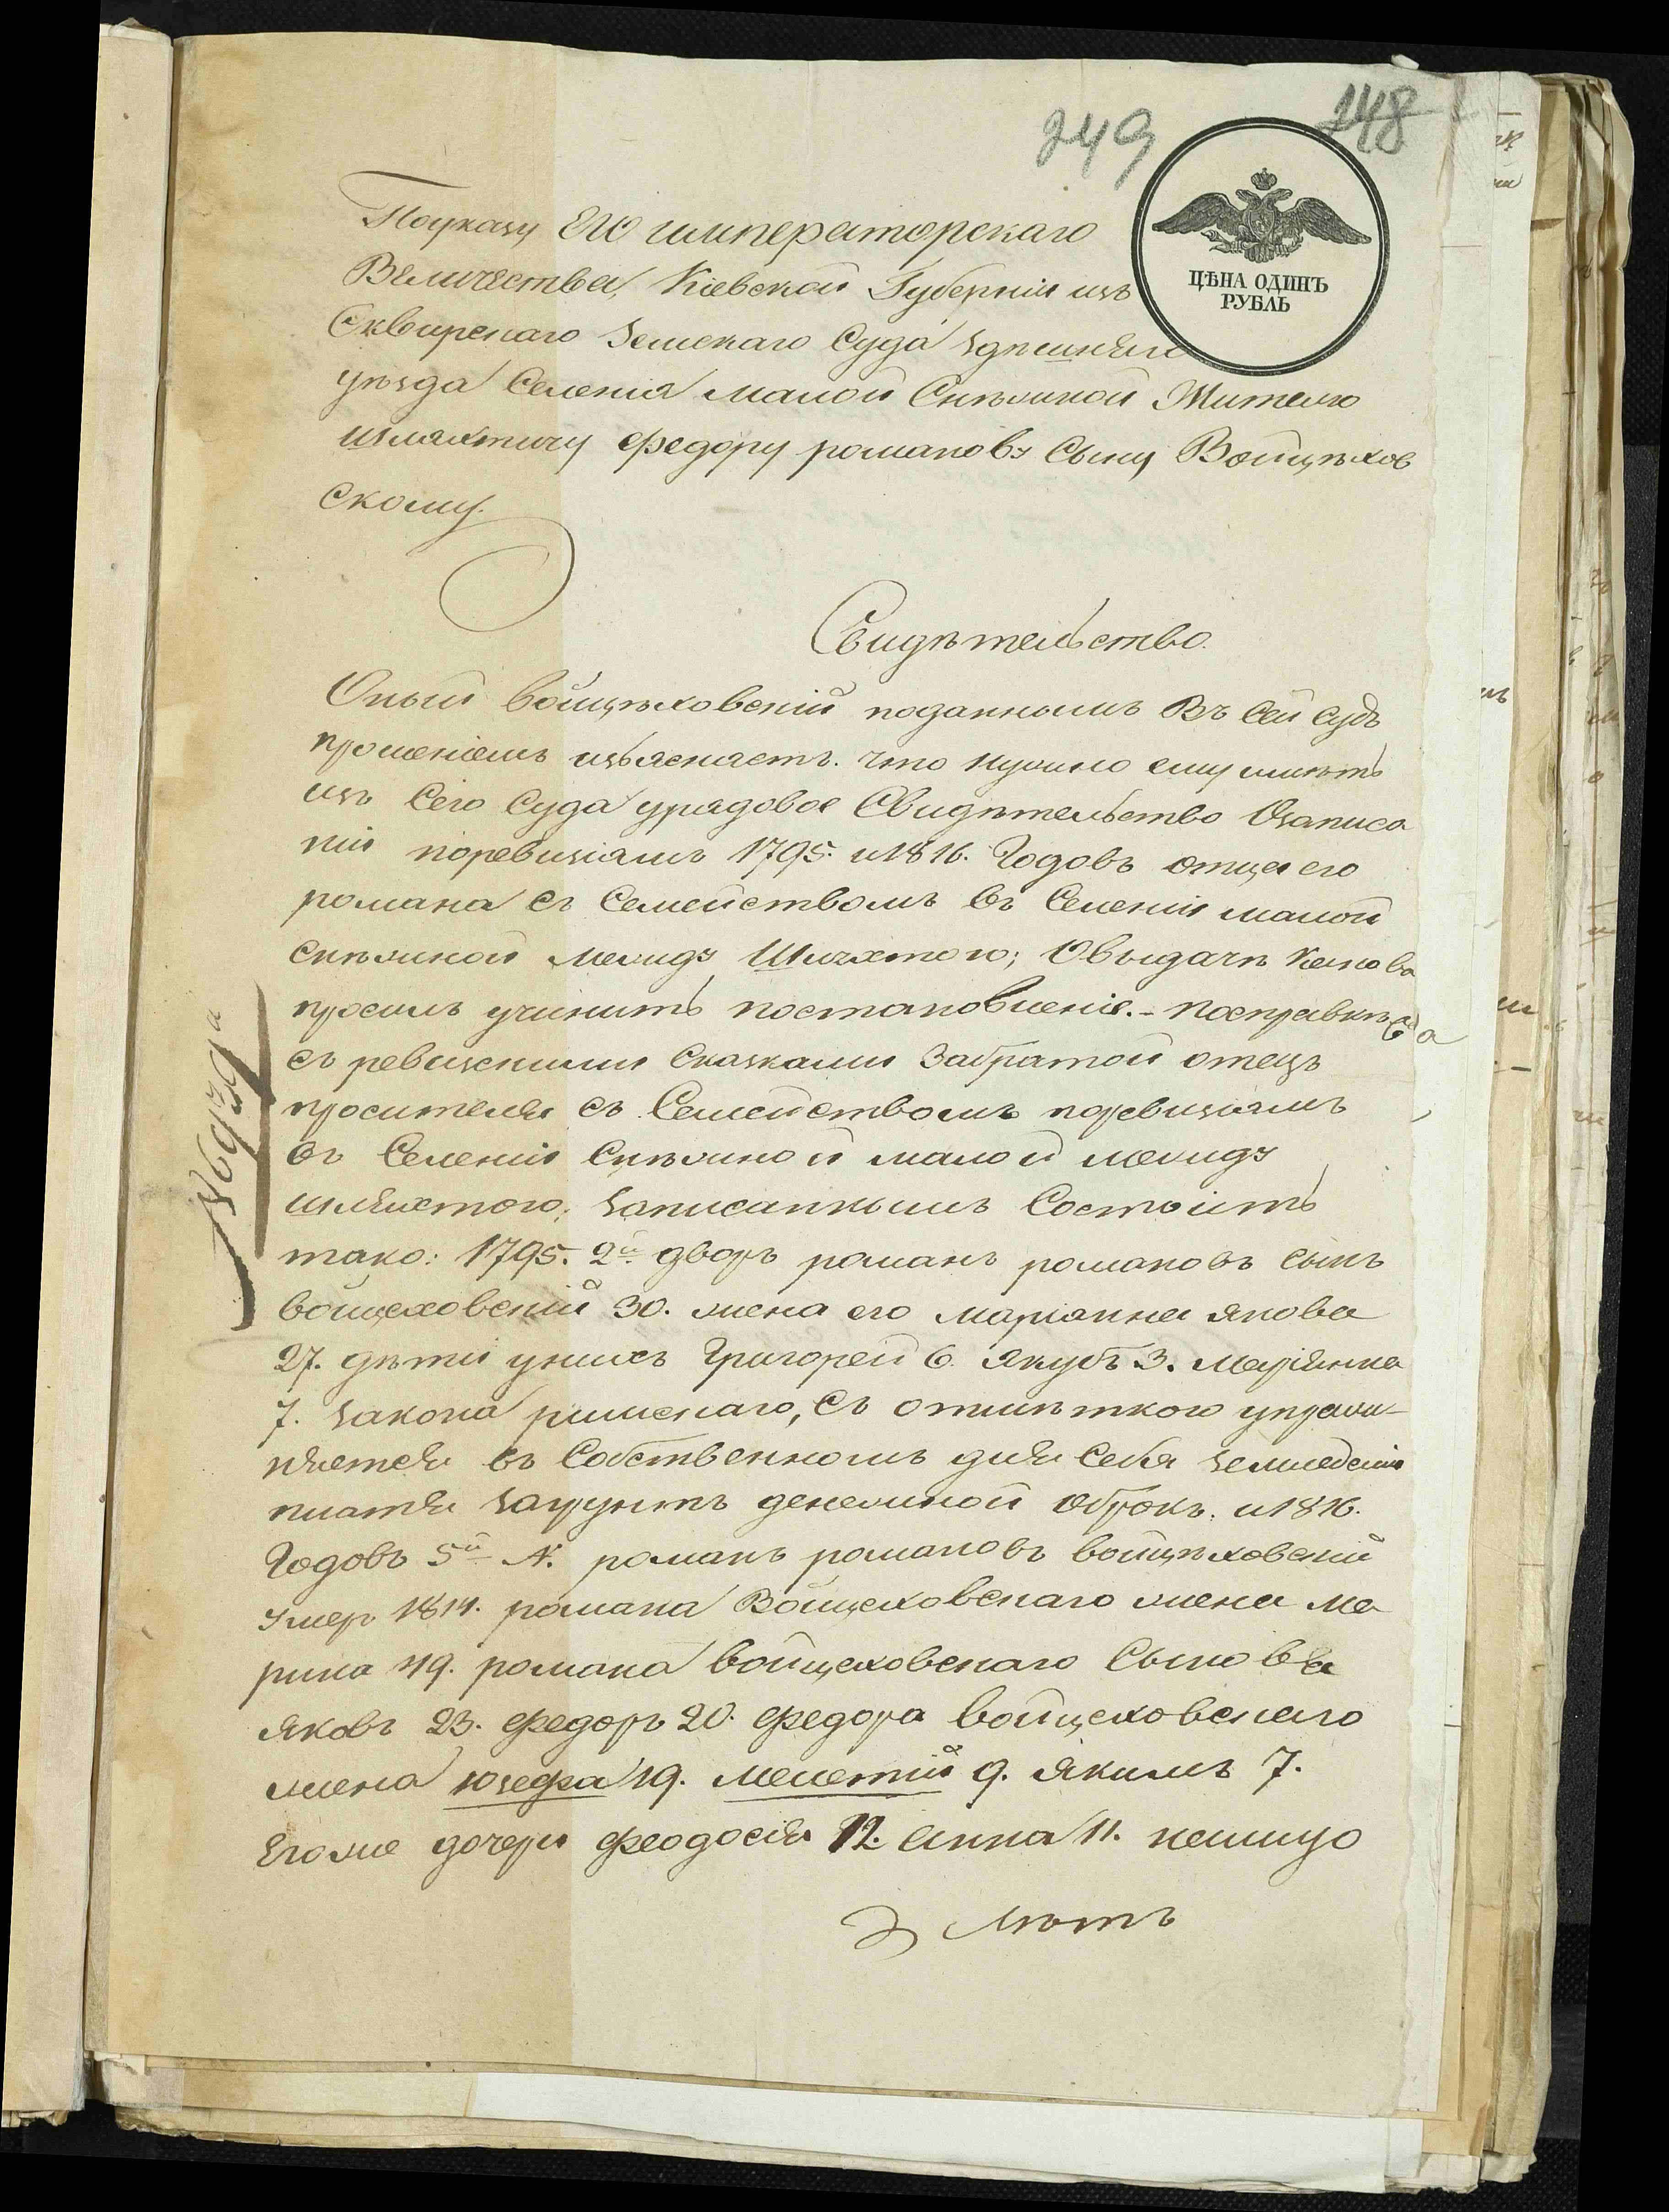 249
148
ЦѢНА ОДИНЪ
РУБЛЬ
Поуказу ЕГО императорскаго
Величества, Кіевской Губерніи изъ
Сквирскаго Земскаго Суда здѣшняго
уѣзда Селенія малой Снѣжной Жителю
шляхтичу Федору романову Сыну Войцѣхов
скому.
Свидѣтельство.
Оный войцѣховскій поданнымъ Въ Сей Судъ
прошеніемъ изъясняетъ. что нужно ему имѣть
изъ Сего Суда урядовое Свидѣтельство Озаписа
ніи поревизіямъ 1795. и 1816. Годовъ отца его
романа съ Семействомъ въ Селеніи малой
снѣжной между Шляхтою; Овыдачѣ Какова
просилъ учинить постановленіе. - посправкѣ
съ ревизскими Сказками Забратой отецъ
просителя съ Семействомъ поревизіямъ
въ Селеніи Снѣжной малой между
шляхтою, записаннымъ Состоитъ
тако: 1795. 2й дворъ романъ романовъ сынъ
войцеховскій 30. жена его маріанна якова
27. дѣти унихъ Григорей 6. Якубъ 3. Маріянна
7. закона римскаго, съ отмѣткою упраж-
няется въ Собственномъ для Себя земледеліи
платя загрунтъ денежной оброкъ. и 1816.
Годовъ 5й N. романъ романовъ войцѣховскій
умеръ 1814. романа Войцеховскаго жена ма
рина 49. романа войцеховскаго Сыновья
яковъ 23. Федоръ 20. Федора войцеховскаго
жена юзефа 19. Мелетій 9. Якимъ 7.
Егоже дочери Феодосія 12. Анна 11.
лѣтъ